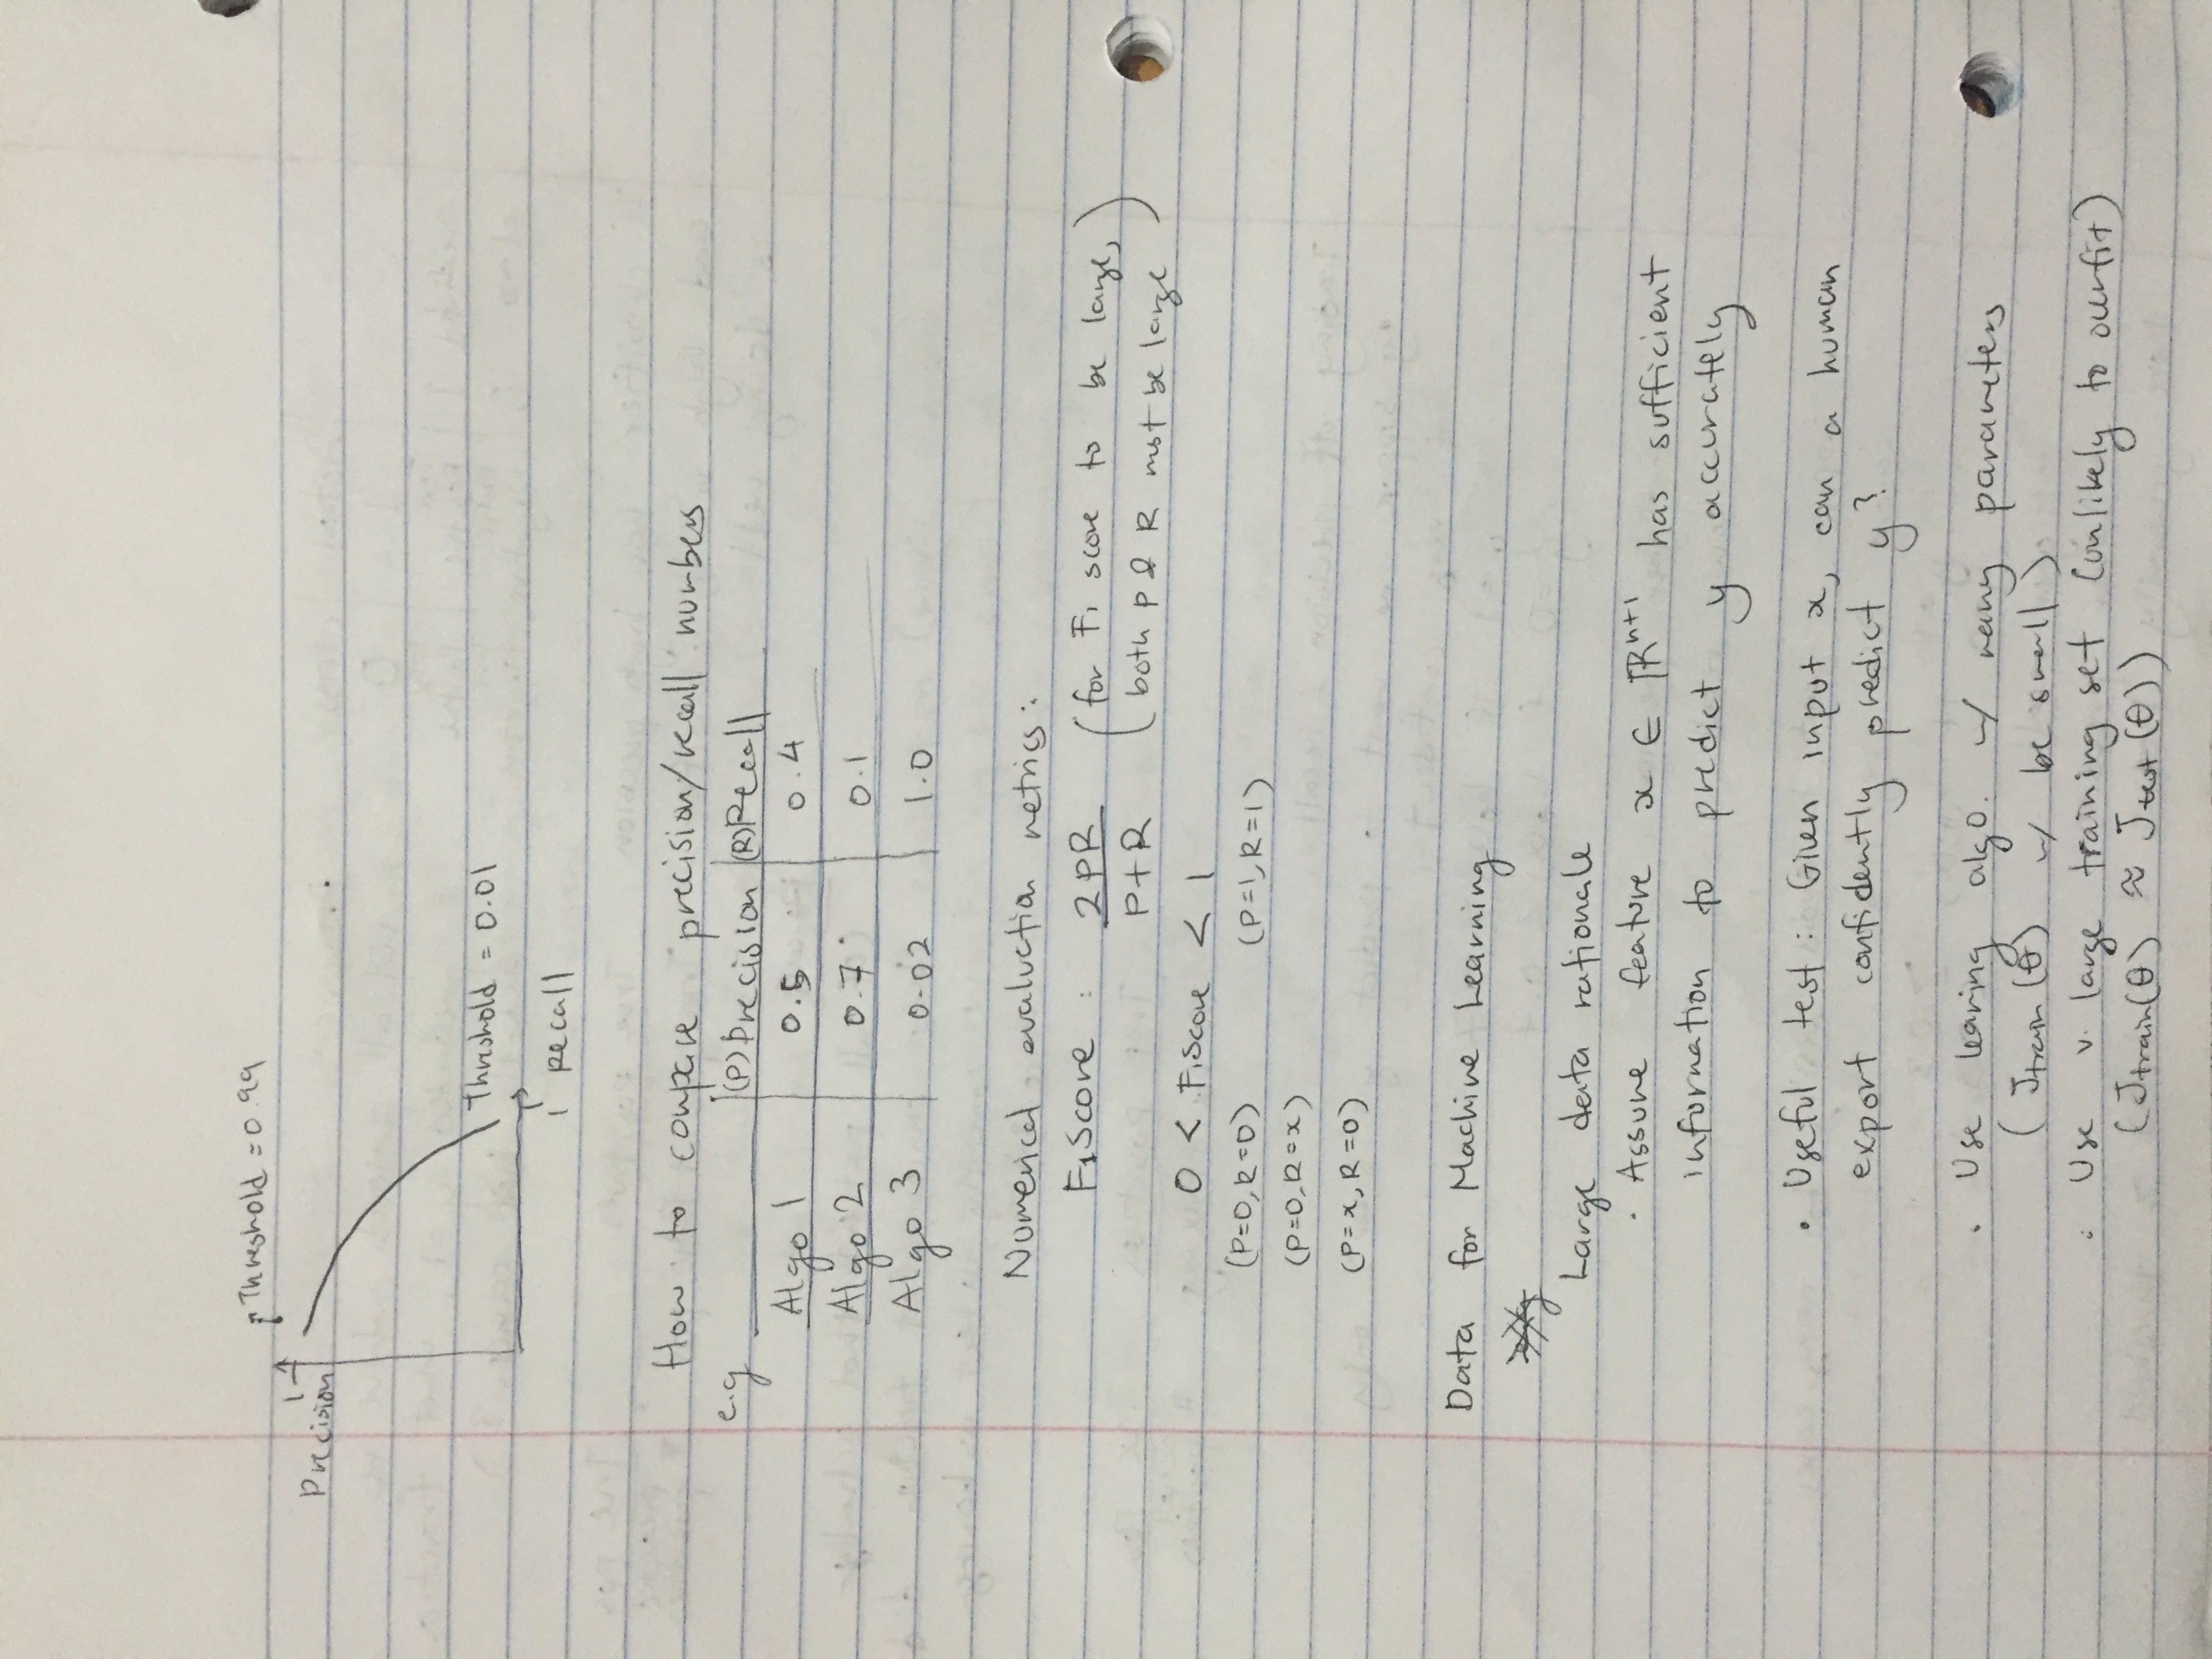 Threshold = 0.99
1
Precision
Threshold = 0.01
1 Recall
How to compare precision/recall numbers
e.g (P) Precision (R) Recall
Algo 1 0.5 0.4
Algo 2 0.7 0.1
Algo 3 0.02 1.0
Numerical evaluation metrics:
F1 Score : 2PR (for F1 score to be large,
P+R both P & R must be large)
0 < F1 Score < 1
(P=0, R=0) (P=1, R=1)
(P=0, R=x)
(P=x, R=0)
Data for Machine Learning
Large data rationale
· Assume feature x ∈ ℝⁿ⁺¹ has sufficient
information to predict y accurately
· Useful test: Given input x, can a human
export confidently predict y?
· Use learing algo. w/ many parameters
(Jtrain(θ) w/ be small)
· Use v. large training set (unlikely to overfit)
(Jtrain(θ) ≈ Jtest(θ))